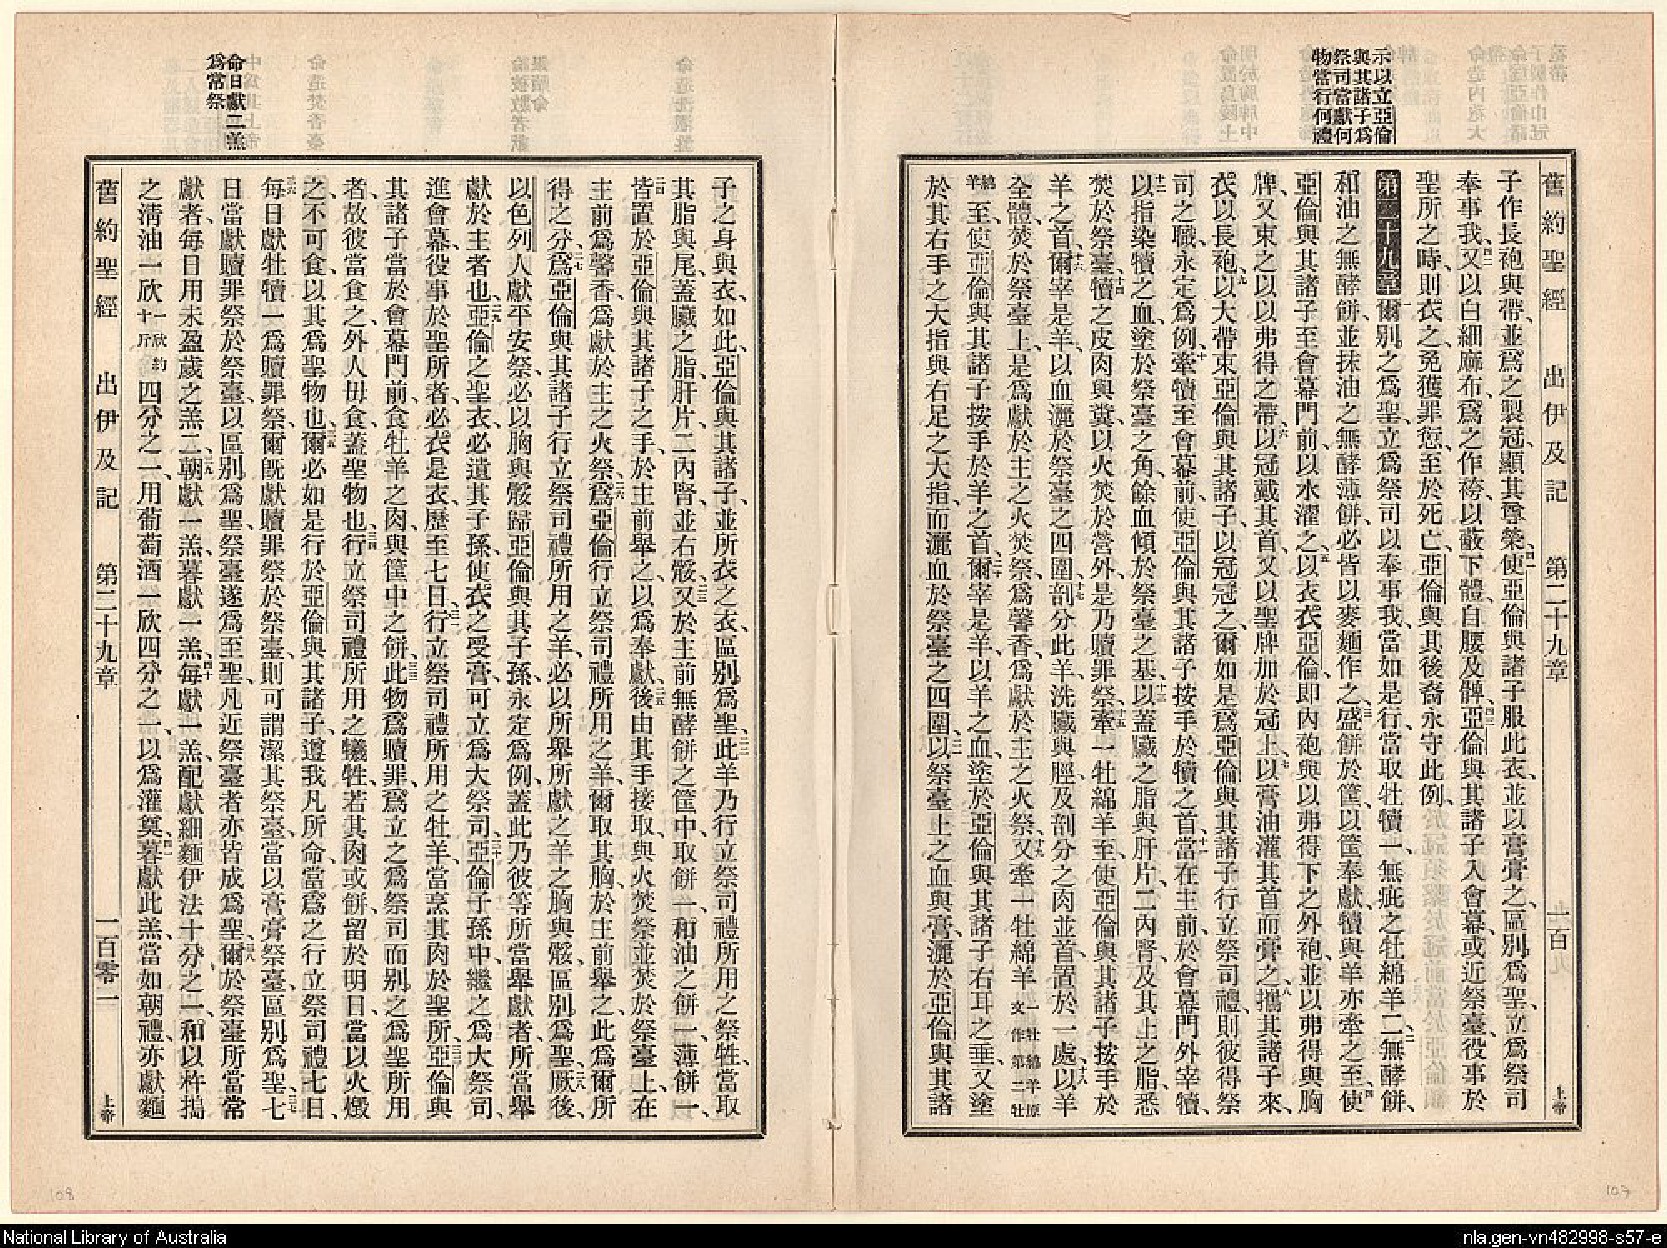 示以立亞倫
與其諸子爲
祭司當獻何
物當行何禮
舊約聖經 出伊及記 第二十九章 一百 上帝
子作長袍與帶、並爲之製冠、顯其尊榮、使亞倫與諸子服此衣、並以膏膏之、區別爲聖、立爲祭司
奉事我、又以白細麻布、爲之作袴、以蔽下體、自腰及髀、亞倫與其諸子入會幕、或近祭臺、役事於
聖所之時、則衣之、免獲罪愆、至於死亡、亞倫與其後裔永守此例、
第二十九章 爾別之爲聖、立爲祭司、以奉事我、當如是行、當取牡犢一、無疵之牡綿羊二、無酵餅、
和油之無酵餅、並抹油之無酵薄餅、必皆以麥麵作之、盛餅於筐、以筐奉獻、犢與羊亦牽之至、使
亞倫與其諸子至會幕門前、以水濯之、以衣衣亞倫、即內袍與以弗得下之外袍、並以弗得與胸
牌、又束之以以弗得之帶、以冠戴其首、又以聖牌加於冠上、以膏油灌其首而膏之、攜其諸子來、
衣以長袍、以大帶束亞倫與其諸子、以冠冠之、爾如是爲亞倫與其諸子行立祭司禮、則彼得祭
司之職、永定爲例、牽犢至會幕前、使亞倫與其諸子按手於犢之首、當在主前、於會幕門外宰犢、
以指染犢之血、塗於祭臺之角、餘血傾於祭臺之基、以蓋臟之脂、與肝片、二內腎、及其上之脂、悉
焚於祭臺、犢之皮肉與糞、以火焚於營外、是乃贖罪祭、牽一牡綿羊至、使亞倫與其諸子按手於
羊之首、爾宰是羊、以血灑於祭臺之四圍、剖分此羊、洗臟與脛、及剖分之肉、並首、置於一處、以羊
全體、焚於祭臺上、是爲獻於主之火焚祭、爲馨香、爲獻於主之火祭、又牽一牡綿羊一牡綿羊原文作第二牡
綿羊至、使亞倫與其諸子按手於羊之首、爾宰是羊、以羊之血、塗於亞倫與其諸子右耳之垂、又塗
於其右手之大指、與右足之大指、而灑血於祭臺之四圍、以祭臺上之血與膏、灑於亞倫與其諸
命日獻二羔
爲常祭
子之身與衣、如此、亞倫與其諸子、並所衣之衣、區別爲聖、此羊乃行立祭司禮所用之祭牲、當取
其脂與尾、蓋臟之脂、肝片、二內腎、並右骽、又於主前無酵餅之筐中、取餅一、和油之餅一、薄餅一、
皆置於亞倫與其諸子之手、於主前舉之、以爲奉獻、後由其手接取、與火焚祭並焚於祭臺上、在
主前爲馨香、爲獻於主之火祭、爲亞倫行立祭司禮所用之羊、爾取其胸、於主前舉之、此爲爾所
得之分、爲亞倫與其諸子行立祭司禮所用之羊、必以所舉所獻之羊之胸與骽、區別爲聖、厥後
以色列人獻平安祭、必以胸與骽、歸亞倫與其子孫、永定爲例、蓋此乃彼等所當舉獻者、所當舉
獻於主者也、亞倫之聖衣、必遺其子孫、使衣之受膏、可立爲大祭司、亞倫子孫中、繼之爲大祭司、
進會幕、役事於聖所者、必衣是衣、歷至七日、行立祭司禮所用之牡羊、當烹其肉於聖所、亞倫與
其諸子當於會幕門前、食牡羊之肉、與筐中之餅、此物爲贖罪、爲立之爲祭司而別之爲聖所用
者、故彼當食之、外人毋食、蓋聖物也、行立祭司禮所用之犧牲、若其肉或餅、留於明日、當以火燬
之、不可食、以其爲聖物也、爾必如是行於亞倫與其諸子、遵我凡所命、當爲之行立祭司禮七日、
每日獻牡犢一、爲贖罪祭、爾旣獻贖罪祭於祭臺、則可謂潔其祭臺、當以膏膏祭臺、區別爲聖、七
日當獻贖罪祭於祭臺、以區別爲聖、祭臺遂爲至聖、凡近祭臺者、亦皆成爲聖、爾於祭臺所當常
獻者、每日用未盈歲之羔二、朝獻一羔、暮獻一羔、每獻一羔、配獻細麵伊法十分之一、和以杵搗
之淸油一欣一欣約十斤四分之一、用葡萄酒一欣四分之一、以爲灌奠、暮獻此羔、當如朝禮、亦獻麵
舊約聖經 出伊及記 第二十九章 一百零一 上帝
108
107
National Library of Australia
nla.gen-vn482998-s57-e